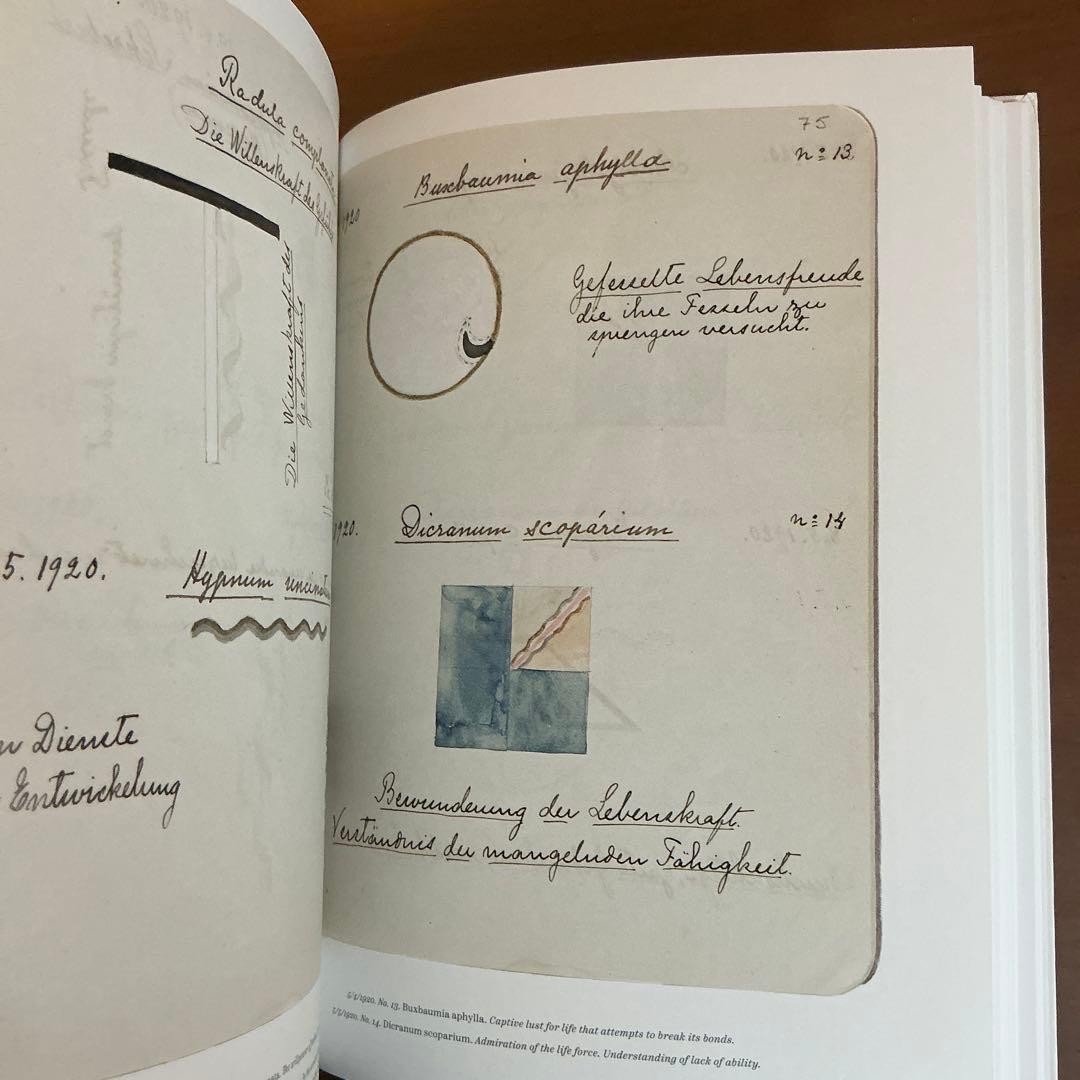 Radula
Die Willenskraft des
Die Willenskraft des
Gedankens
5. 1920.
Hypnum
Dienste
Entwickelung
75
Buxbaumia aphylla
nº 13
1920
Gefesselte Lebensfreude
die ihre Fesseln zu
sprengen versucht.
1920.
Dicranum scopárium
nº 14
Bewunderung der Lebenskraft.
Verständnis der mangelnden Fähigkeit.
5/4/1920. No. 13. Buxbaumia aphylla. Captive lust for life that attempts to break its bonds.
/1920. No. 14. Dicranum scoparium. Admiration of the life force. Understanding of lack of ability.